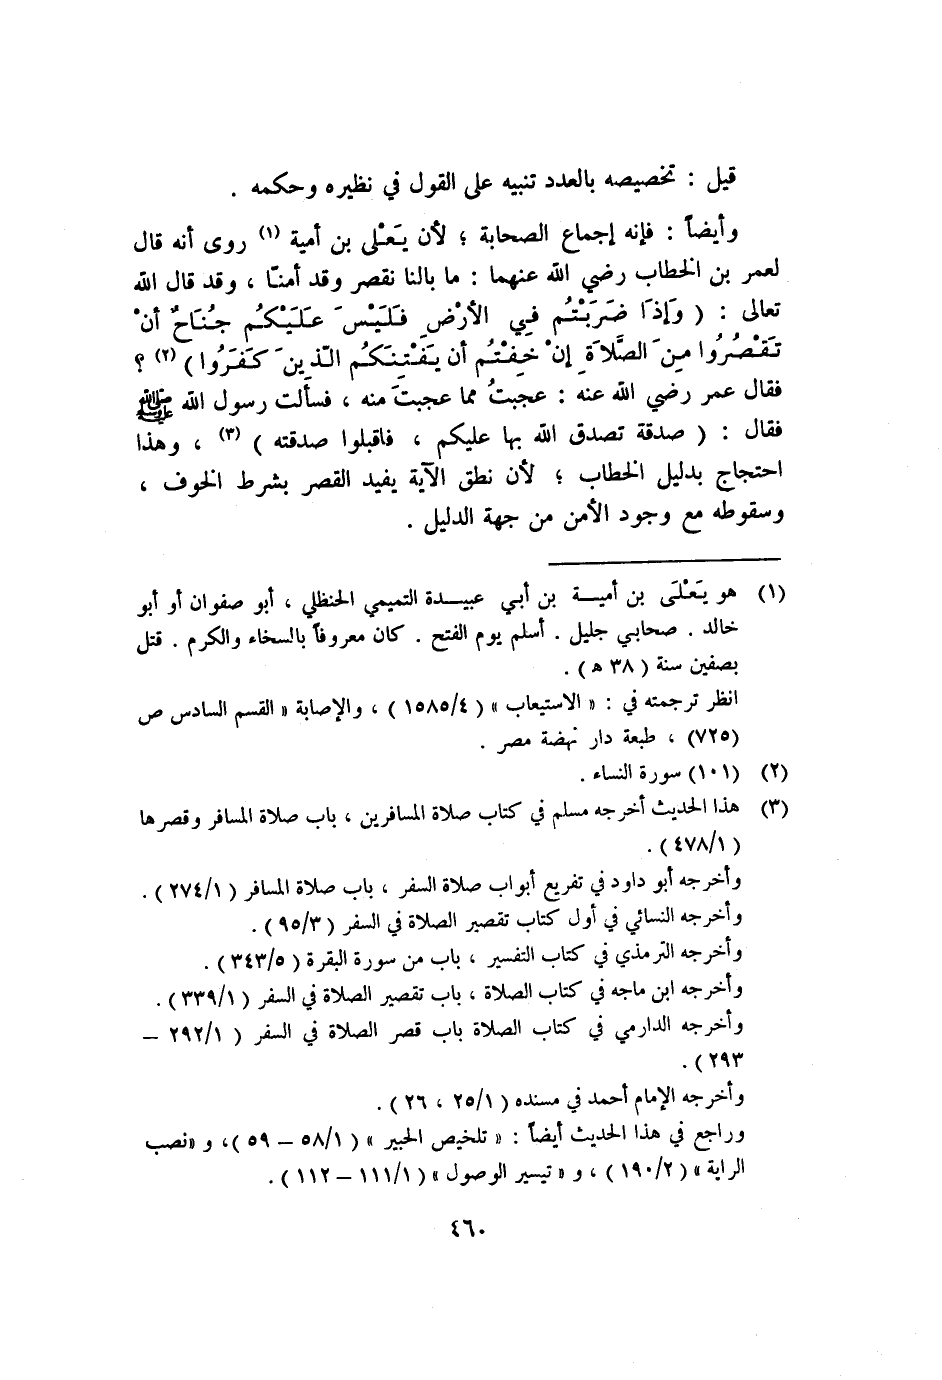 قيل : تخصيصه بالعدد تنبيه على القول في نظيره وحكمه .
وأيضاً : فإنه إجماع الصحابة ؛ لأن يَعْلى بن أمية (١) روى أنه قال
لعمر بن الخطاب رضي الله عنهما : ما بالنا نقصر وقد أمنّا ، وقد قال الله
تعالى : ( وَإذَا ضَرَبْتُم فِي الأرْضِ فَلَيْسَ عَلَيْكُم جُنَاحٌ أنْ
تَقْصُرُوا مِنَ الصَّلاَةِ إنْ خِفْتُم أن يَفْتِنَكُم الّذِينَ كَفَرُوا ) (٢) ؟
فقال عمر رضي الله عنه : عجبتُ مما عجبتَ منه ، فسألت رسول الله ﷺ
فقال : ( صدقة تصدق الله بها عليكم ، فاقبلوا صدقته ) (٣) ، وهذا
احتجاج بدليل الخطاب ؛ لأن نطق الآية يفيد القصر بشرط الخوف ،
وسقوطه مع وجود الأمن من جهة الدليل .
(١) هو يَعْلَى بن أميـة بن أبي عبيـدة التميمي الحنظلي ، أبو صفوان أو أبو
خالد . صحابي جليل . أسلم يوم الفتح . كان معروفاً بالسخاء والكرم . قتل
بصفين سنة ( ٣٨ ه ) .
انظر ترجمته في : « الاستيعاب » ( ١٥٨٥/٤ ) ، والإصابة « القسم السادس ص
(٧٢٥) ، طبعة دار نهضة مصر .
(٢) (١٠١) سورة النساء .
(٣) هذا الحديث أخرجه مسلم في كتاب صلاة المسافرين ، باب صلاة المسافر وقصرها
( ٤٧٨/١ ) .
وأخرجه أبو داود في تفريع أبواب صلاة السفر ، باب صلاة المسافر ( ٢٧٤/١ ) .
وأخرجه النسائي في أول كتاب تقصير الصلاة في السفر ( ٩٥/٣ ) .
وأخرجه الترمذي في كتاب التفسير ، باب من سورة البقرة ( ٣٤٣/٥ ) .
وأخرجه ابن ماجه في كتاب الصلاة ، باب تقصير الصلاة في السفر ( ٣٣٩/١ ) .
وأخرجه الدارمي في كتاب الصلاة باب قصر الصلاة في السفر ( ٢٩٢/١ –
٢٩٣ ) .
وأخرجه الإمام أحمد في مسنده ( ٢٥/١ ، ٢٦ ) .
وراجع في هذا الحديث أيضاً : « تلخيص الحبير » ( ٥٨/١ – ٥٩ )، و «نصب
الراية» ( ١٩٠/٢ ) ، و « تيسير الوصول » ( ١١١/١ – ١١٢ ) .
٤٦٠